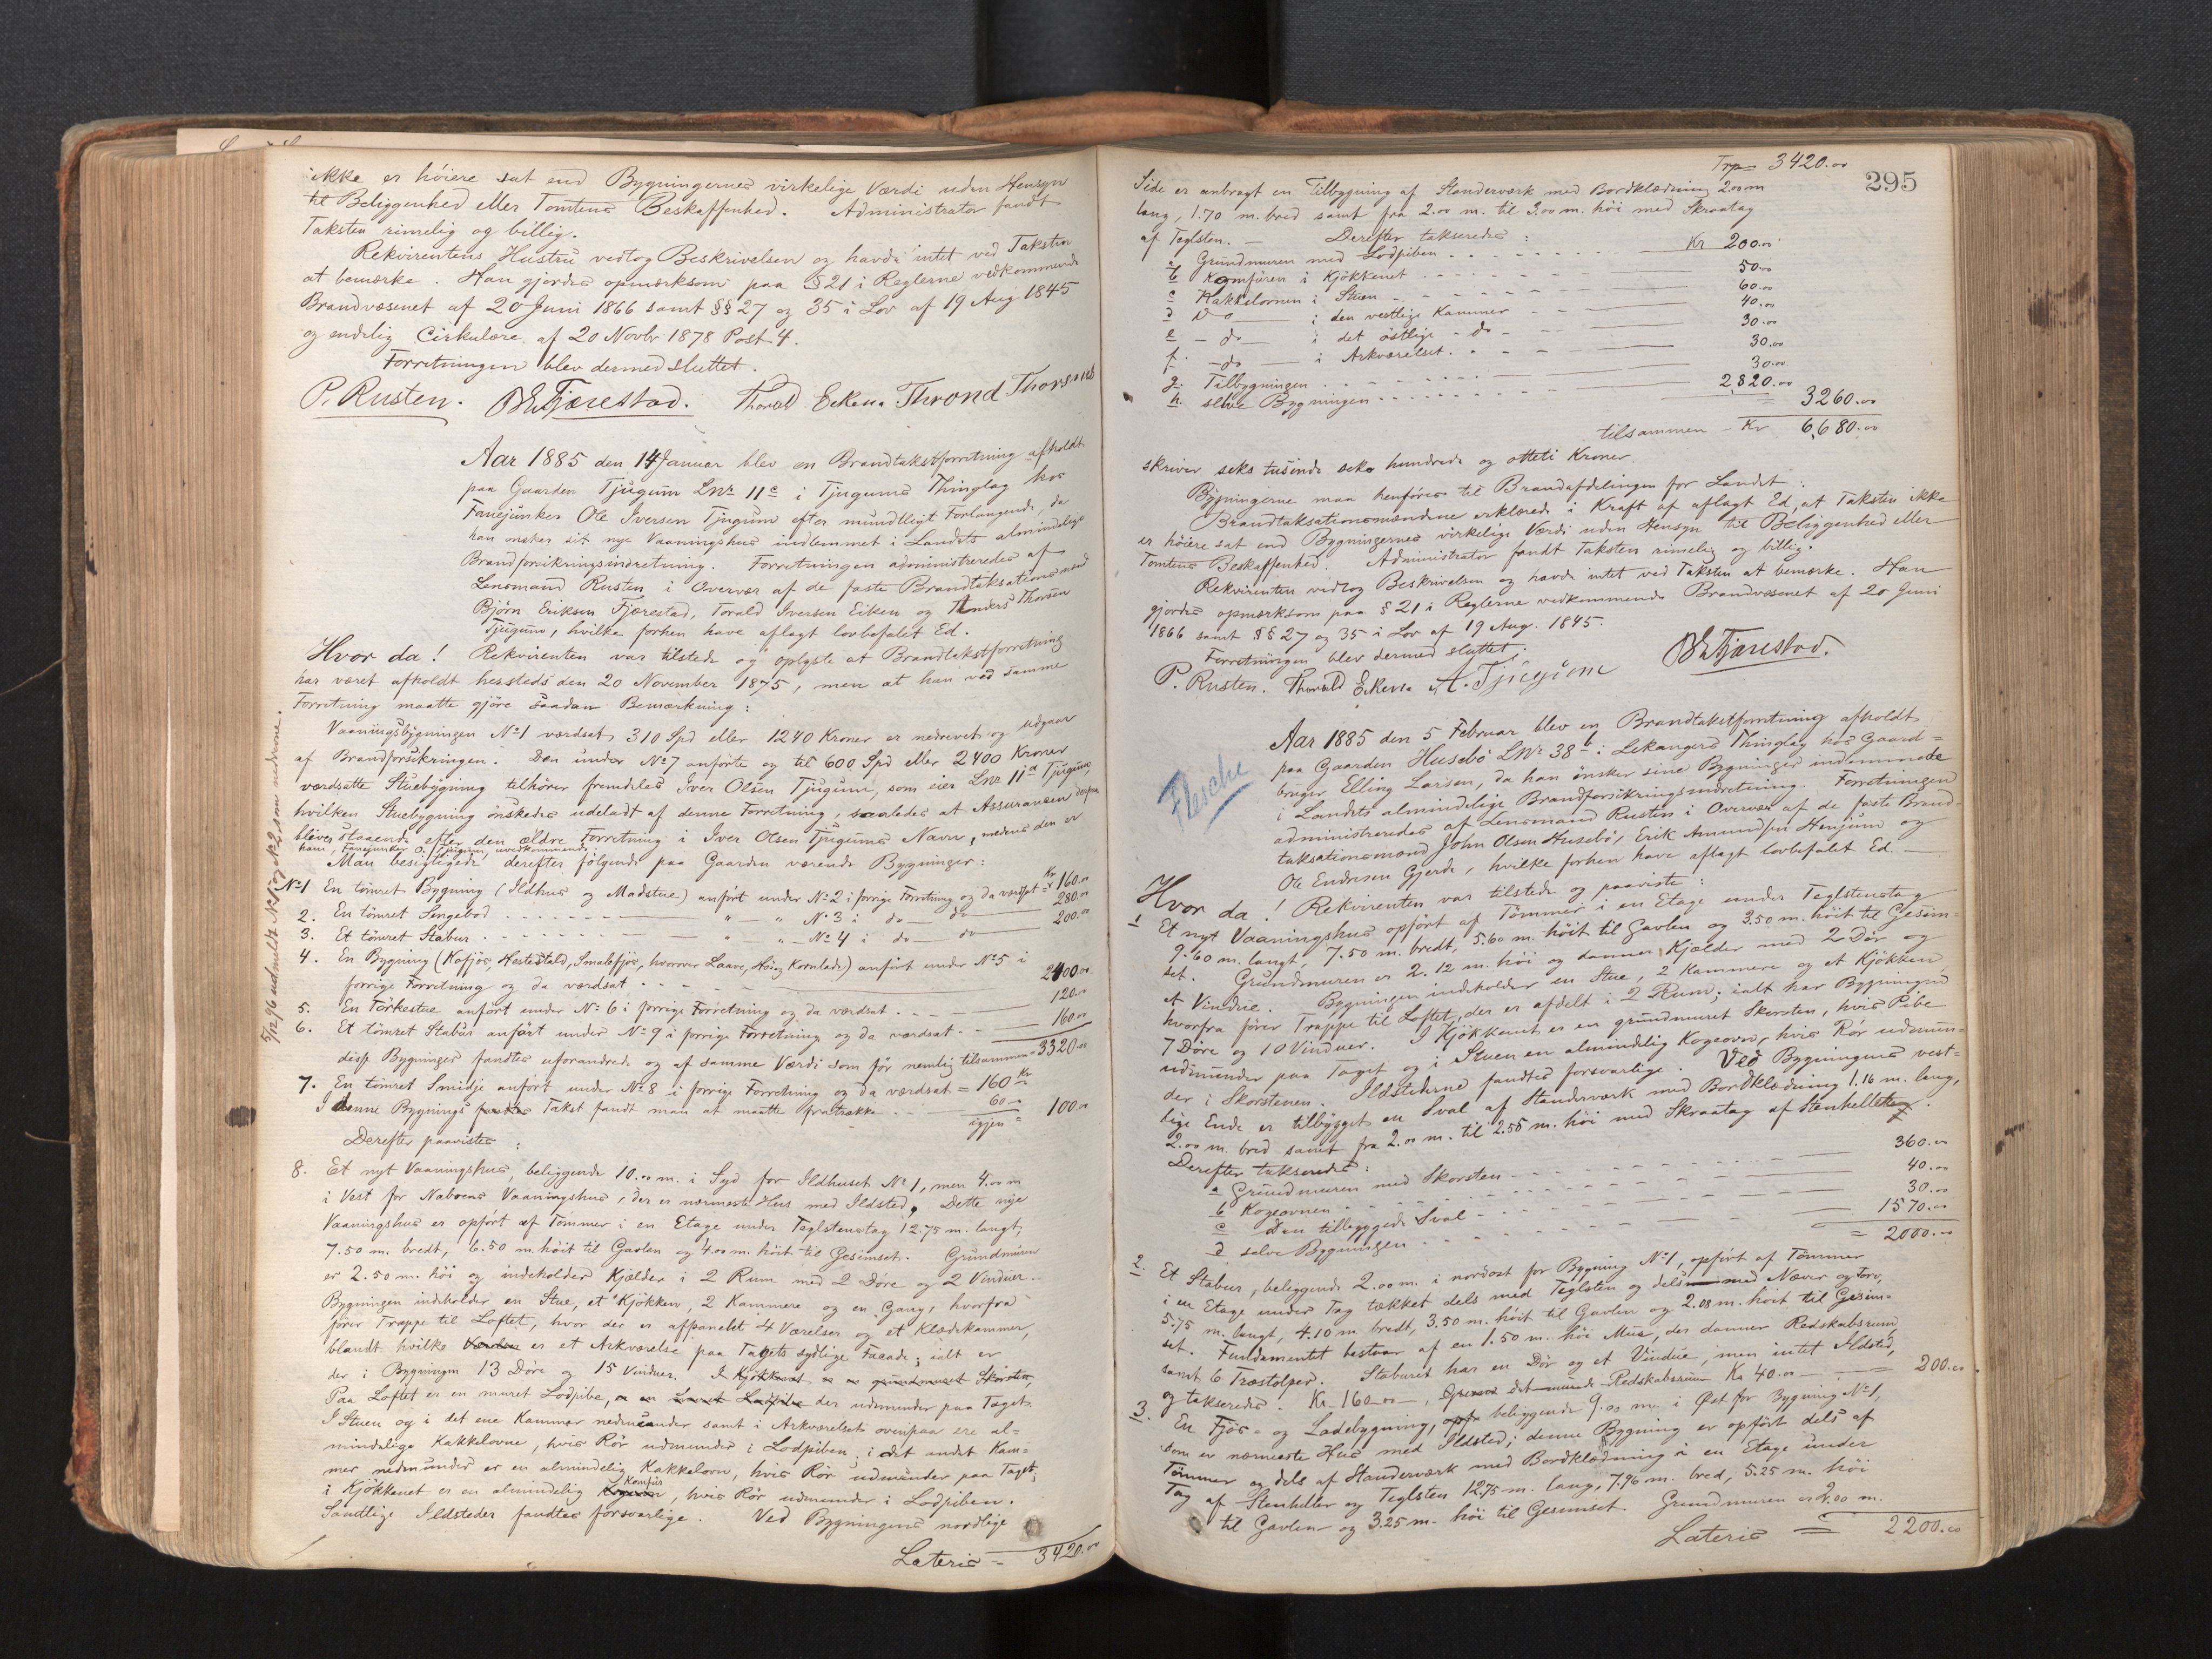 ikke er höiere sat end Bygningernes virkelige Værdi uden Hensyn
til Beliggenhed eller Tomtens Beskaffenhed. Administrator fandt
Taksten rimelig og billig.
Rekvirentens Hustru vedtog Beskrivelsen og havde intet ved Taksten
at bemærke. Han gjordes opmærksom paa §21 i Reglerne vedkommende
Brandvæsenet af 20 Juni 1866 samt §§27 og 35 i Lov af 19 Aug 1845
og endelig Cirkulære af 20 Novbr 1878 Post 4.
Forretningen blev dermed sluttet.
P. Rusten. BEFjærestad. Thorald Eeken Thrond Thorsnes
Aar 1885 den 14 Januar blev en Brandtakstforretning afholdt
paa Gaarden Tjugum Lnr 11c i Tjugums Thinglag hos
Fanejunker Ole Iversen Tjugum efter mundtligt Forlangende, da
han önsker sit nye Vaaningshus indlemmet i Landets almindelige
Brandforsikringsindretning. Forretningen administreredes af
Lensmand Rusten i Overvær af de faste Brandtaksationsmænd
Björn Eriksen Fjærestad, Torald Iversen Eiken og Anders Thorsen
Tjugum, hvilke forhen have aflagt lovbefalet Ed.
Hvor da! Rekvirenten var tilstede og oplyste at Brandtakstforretning
har været afholdt hersteds den 20 November 1875, men at han ved samme
Forretning maatte gjöre saadan Bemærkning:
Vaaningsbygningen No 1 værdsat 310 Spd eller 1240 Kroner er nedrevet og udgaar
af Brandforsikringen. Den under No 7 anförte og til 600 Spd eller 2400 Kroner
værdsatte Stuebygning tilhörer fremdeles Iver Olsen Tjugum, som eier Lnr 11a Tjugum,
hvilken Stuebygning önskedes udeladt af denne Forretning, saaledes at Assurancen derpaa
bliver staaende efter den ældre Forretning i Iver Olsen Tjugums Navn, medens den er
ham, Fanejunker O. Tjugum, uvedkommende.
Man besigtigede derefter fölgende paa Gaarden værende Bygninger:
No 1 En tömret Bygning (Ildhus og Madstue) anfört under No 2 i forrige Forretning og da værdsat = Kr 160.00
2. En tömret Sengebod - - - " - " No 3 i do do 280.00
3. Et tömret Stabur - - - " - " No 4 i do do 200.00
4. En Bygning (Kofjös, Hestestald, Smalefjös, hvorover Laave, Hö og Kornlade) anfört under No 5 i
forrige Forretning og da værdsat - - - 2400.00
5. En Törkestue anfört under No 6 i forrige Forretning og da værdsat - - - 120.00
6. Et tömret Stabur anfört under No 9 i forrige Forretning og da værdsat - - 160.00
disse Bygninger fandtes uforandrede og af samme Værdi som för nemlig tilsammen = 3320.00
7. En tömret Smidje anfört under No 8 i forrige Forretning og da værdsat = 160 Kr
I denne Bygnings Takst fandt man at maatte fratrække - - 60 -
igjen = 100.00
Derefter paavistes:
8. Et nyt Vaaningshus, beliggende 10.00 m. i Syd for Ildhuset No 1, men 4.00 m
i Vest for Naboens Vaaningshus, der er nærmeste Hus med Ildsted. Dette nye
Vaaningshus er opfört af Tömmer i en Etage under Teglstenstag 12.75 m. langt,
7.50 m. bredt, 6.50 m. höit til Gavlen og 4.00 m. höit til Gesimset. Grundmuren
er 2.50 m. höi og indeholder Kjælder i 2 Rum med 2 Döre og 2 Vinduer.
Bygningen indeholder en Stue, et Kjökken, 2 Kammere og en Gang, hvorfra
förer Trappe til Loftet, hvor der er afpanelet 4 Værelser og et Klædekammer,
blandt hvilke er et Arkværelse paa Tagets sydlige Facade; ialt er
der i Bygningen 13 Döre og 15 Vinduer. I Kjökkenet er en grundmuret Skorsten,
Paa Loftet er en muret Lodpibe, der udmunder paa Taget.
I Stuen og i det ene Kammer nedenunder samt i Arkværelset ovenpaa ere al-
mindelige Kakkelovne, hvis Rör udmunder i Lodpiben; i det andet Kam-
mer nedenunder er en almindelig Kakkelovn, hvis Rör udmunder paa Taget;
i Kjökkenet er en almindelig Komfür, hvis Rör udmunder i Lodpiben.
Samtlige Ildsteder fandtes forsvarlige. Ved Bygningens nordlige
Lateris = 3420.00
5/12 96 udmeldt No 1 og No 2 som nedrevne.
295
Trp = 3420.00
Side er anbragt en Tilbygning af Standerværk med Bordklædning 2.00 m
lang, 1.70 m. bred samt fra 2.00 m. til 3.00 m. höi med Skraatag
af Teglsten. - Derefter takseredes:
a Grundmuren med Lodpiben - - - Kr 200.00
b Komfüren i Kjökkenet - - - 50.00
c Kakkelovnen i Stuen - - - 60.00
d do i den vestlige Kammer - - 40.00
e - do - i det östlige - do - - 30.00
f. - do - i Arkværelset. - - 30.00
g. Tilbygningen - - - 30.00
h. selve Bygningen - - - 2820.00
= 3260.00
tilsammen - Kr 6680.00
skriver seks tusinde seks hundrede og otteti Kroner.
Bygningerne maa henföres til Brandafdelingen for Landet:
Brandtaksationsmændene erklærede i Kraft af aflagt Ed, at Taksten ikke
er höiere sat end Bygningernes virkelige Værdi uden Hensyn til Beliggenhed eller
Tomtens Beskaffenhed. Administrator fandt Taksten rimelig og billig.
Rekvirenten vedtog Beskrivelsen og havde intet ved Taksten at bemærke. Han
gjordes opmærksom paa §21 i Reglerne vedkommende Brandvæsenet af 20 Juni
1866 samt §§27 og 35 i Lov af 19 Aug. 1845.
Forretningen blev dermed sluttet.
P. Rusten. Thorald Eeken A. Tjugum BEFjærestad.
Flesche
Aar 1885 den 5 Februar blev en Brandtakstforretning afholdt
paa Gaarden Husebö LNr 38 i Lekangers Thinglag hos Gaard=
bruger Elling Larsen, da han önsker sine Bygninger indlemmede
i Landets almindelige Brandforsikringsindretning. Forretningen
administreredes af Lensmand Rusten i Overvær af de faste Brand-
taksationsmænd John Olsen Husebö, Erik Amundsen Henjum og
Ole Endresen Gjerde, hvilke forhen have aflagt lovbefalet Ed. -
Hvor da! Rekvirenten var tilstede og paaviste:
1 Et nyt Vaaningshus opfört af Tömmer i en Etage under Teglstenstag
9.60 m. langt, 7.50 m. bredt, 5.60 m. höit til Gavlen og 3.50 m. höit til Gesim-
set. Grundmuren er 2.12 m. höi og danner Kjælder med 2 Dör og
et Vindue. Bygningen indeholder en Stue, 2 Kammere og et Kjökken,
hvorfra förer Trappe til Loftet, der er afdelt i 2 Rum; ialt har Bygningen
7 Döre og 10 Vinduer. I Kjökkenet er en grundmuret Skorsten, hvis Pibe
udmunder paa Taget og i Stuen en almindelig Kogeovn, hvis Rör udmun=
der i Skorstenen. Ildstederne fandtes forsvarlige. Ved Bygningens vest=
lige Ende er tilbygget en Sval af Standerværk med Bordklædning 1.16 m. lang,
2.00 m. bred samt fra 2.00 m. til 2.55 m. höi med Skraatag af Stenheller.
Derefter takseredes:
a Grundmuren med Skorsten - - - 360.00
b Kogeovnen - - - 40.00
c den tilbyggede Sval - - - 30.00
d selve Bygningen - - - 1570.00
= 2000.00
2. Et Stabur, beliggende 2.00 m. i nordost for Bygning No 1, opfört af Tömmer
i en Etage under Tag tækket dels med Teglsten og dels med Næver og Torv,
5.75 m. langt, 4.10 m. bredt, 3.50 m. höit til Gavlen og 2.08 m. höit til Gesim=
set. Fundamentet bestaar af en 1.50 m. höi Mur, der danner Redskabsrum
samt 6 Træstolper. Staburet har en Dör og et Vindue, men intet Ildsted,
og takseredes. Kr 160.00, det murede Redskabsrum Kr 40.00 - = 200.00
3. En Fjös= og Ladebygning, beliggende 9.00 m. i Öst for Bygning No 1,
som er nærmeste Hus med Ildsted; denne Bygning er opfört dels af
Tömmer og dels af Standerværk med Bordklædning i en Etage under
Tag af Stenheller og Teglsten 12.75 m. lang, 7.96 m. bred, 5.25 m. höi
til Gavlen og 3.25 m. höi til Gesimset. Grundmuren er 2.00 m.
Lateris = 2200.00